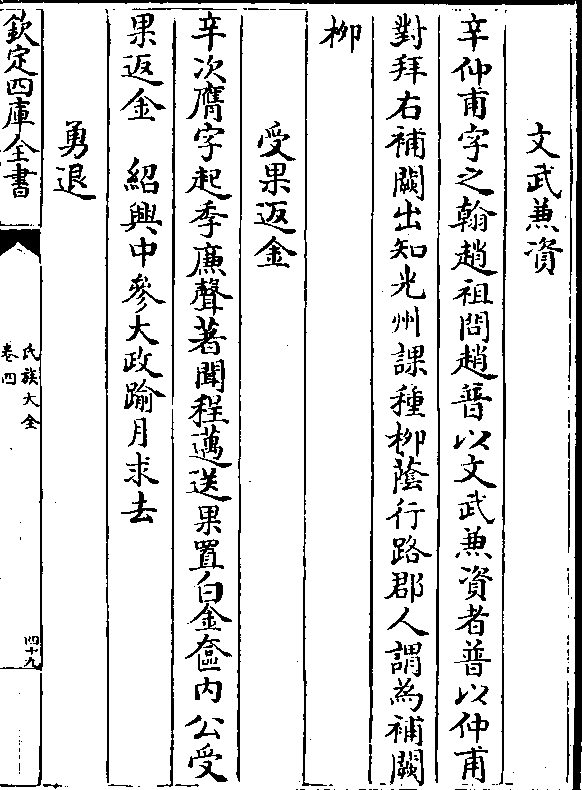 文武兼資
辛仲甫字之翰趙祖問趙普以文武兼資者普以仲甫
對拜右補闕出知光州課種柳蔭行路郡人謂為補闕
柳
受果返金
辛次膺字起季廉聲著聞程邁送果置白金奩内公受
果返金　紹興中參大政踰月求去
勇退
欽定四庫全書
氏族大全
卷四
四十九